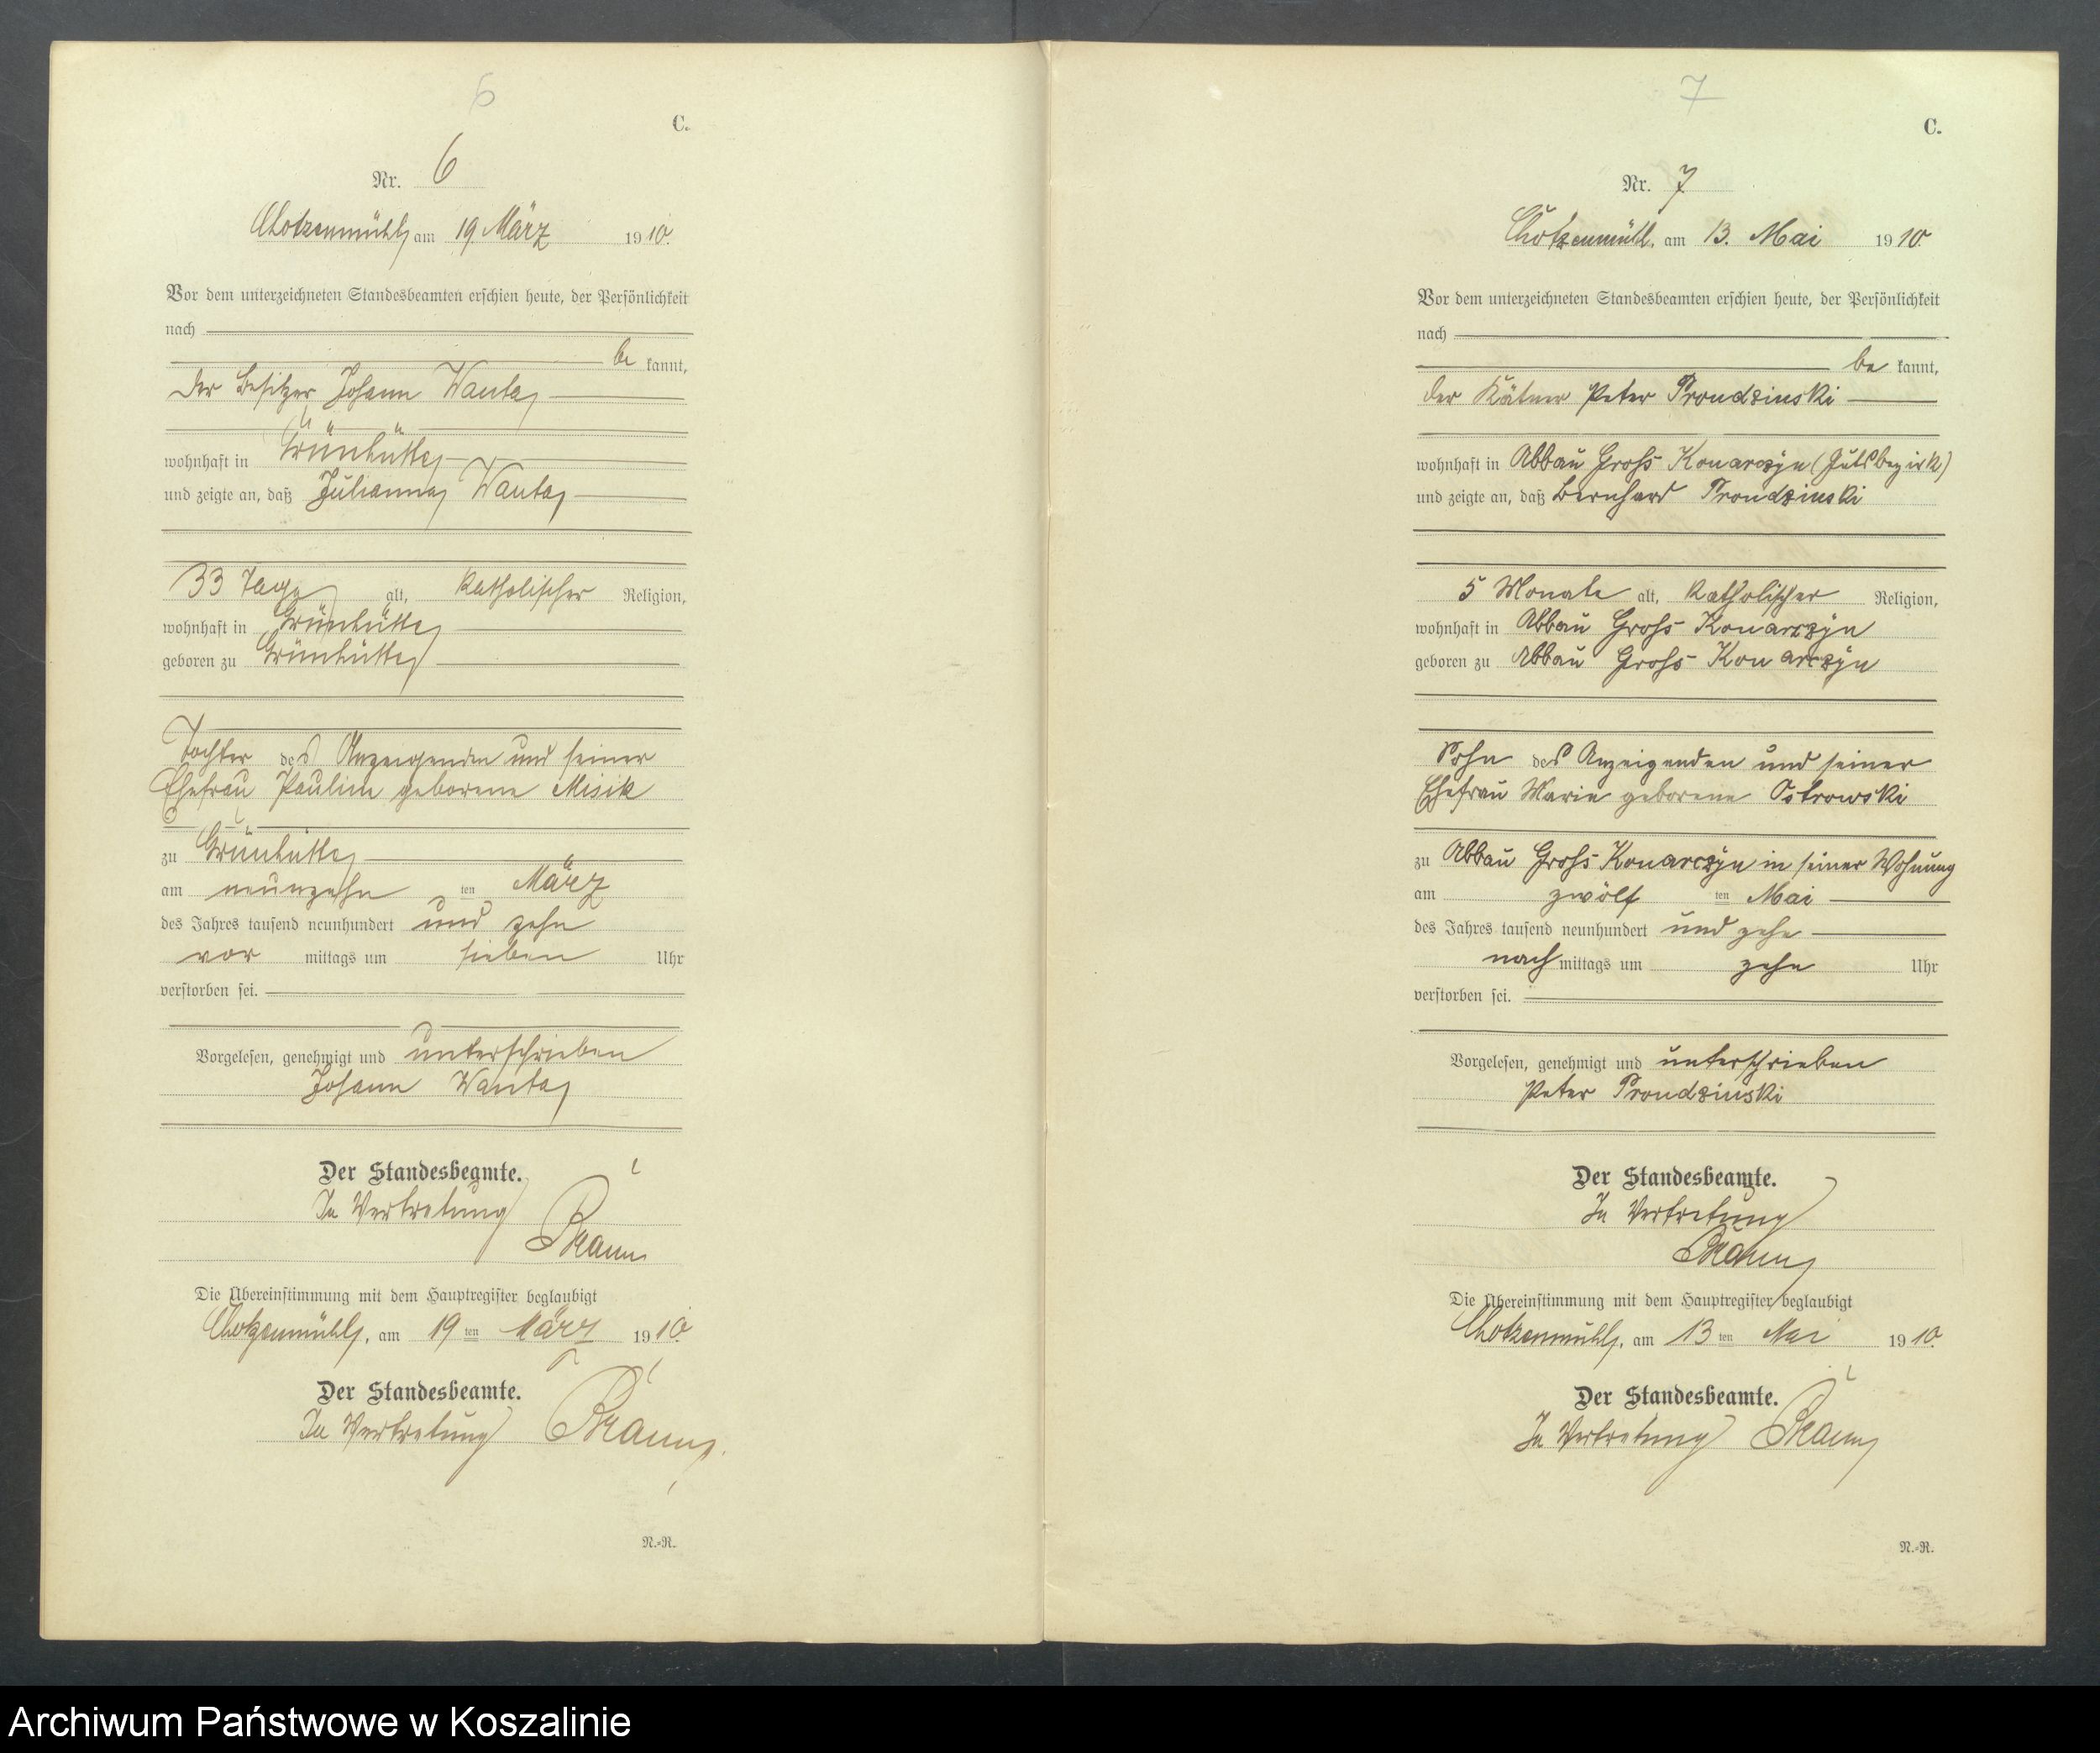 6
C.
Nr. 6
Chotzenmühl, am 19. März 1910.
Vor dem unterzeichneten Standesbeamten erschien heute, der Persönlichkeit
nach
be kannt,
der Besitzer Johann Wanta
wohnhaft in Grünhütte
und zeigte an, daß Julianna Wanta
33 Tage alt, katholischer Religion,
wohnhaft in Grünhütte
geboren zu Grünhütte
Tochter des Anzeigenden und seiner
Ehefrau Pauline geborene Misik
zu Grünhütte
am neunzehn ten März
des Jahres tausend neunhundert und zehn
vor mittags um sieben Uhr
verstorben sei.
Vorgelesen, genehmigt und unterschrieben
Johann Wanta
Der Standesbeamte.
In Vertretung
Die Übereinstimmung mit dem Hauptregister beglaubigt
Chotzenmühl, am 19 ten März 1910.
Der Standesbeamte.
In Vertretung
N.-R.
7
C.
Nr. 7.
Chotzenmühl, am 13. Mai 1910.
Vor dem unterzeichneten Standesbeamten erschien heute, der Persönlichkeit
nach
be kannt,
der Kätner Peter Prondzinski
wohnhaft in Abbau Groß Konarczyn (Gutsbezirk)
und zeigte an, daß Bernhard Prondzinski
5 Monate alt, katholischer Religion,
wohnhaft in Abbau Groß Konarczyn
geboren zu Abbau Groß Konarczyn
Sohn des Anzeigenden und seiner
Ehefrau Marie geborene Ostrowski
zu Abbau Groß Konarczyn in seiner Wohnung
am zwölf ten Mai
des Jahres tausend neunhundert und zehn
nach mittags um zehn Uhr
verstorben sei.
Vorgelesen, genehmigt und unterschrieben
Peter Prondzinski
Der Standesbeamte.
In Vertretung
Die Übereinstimmung mit dem Hauptregister beglaubigt
Chotzenmühl, am 13 ten Mai 1910.
Der Standesbeamte.
In Vertretung
N.-R.
Archiwum Państwowe w Koszalinie